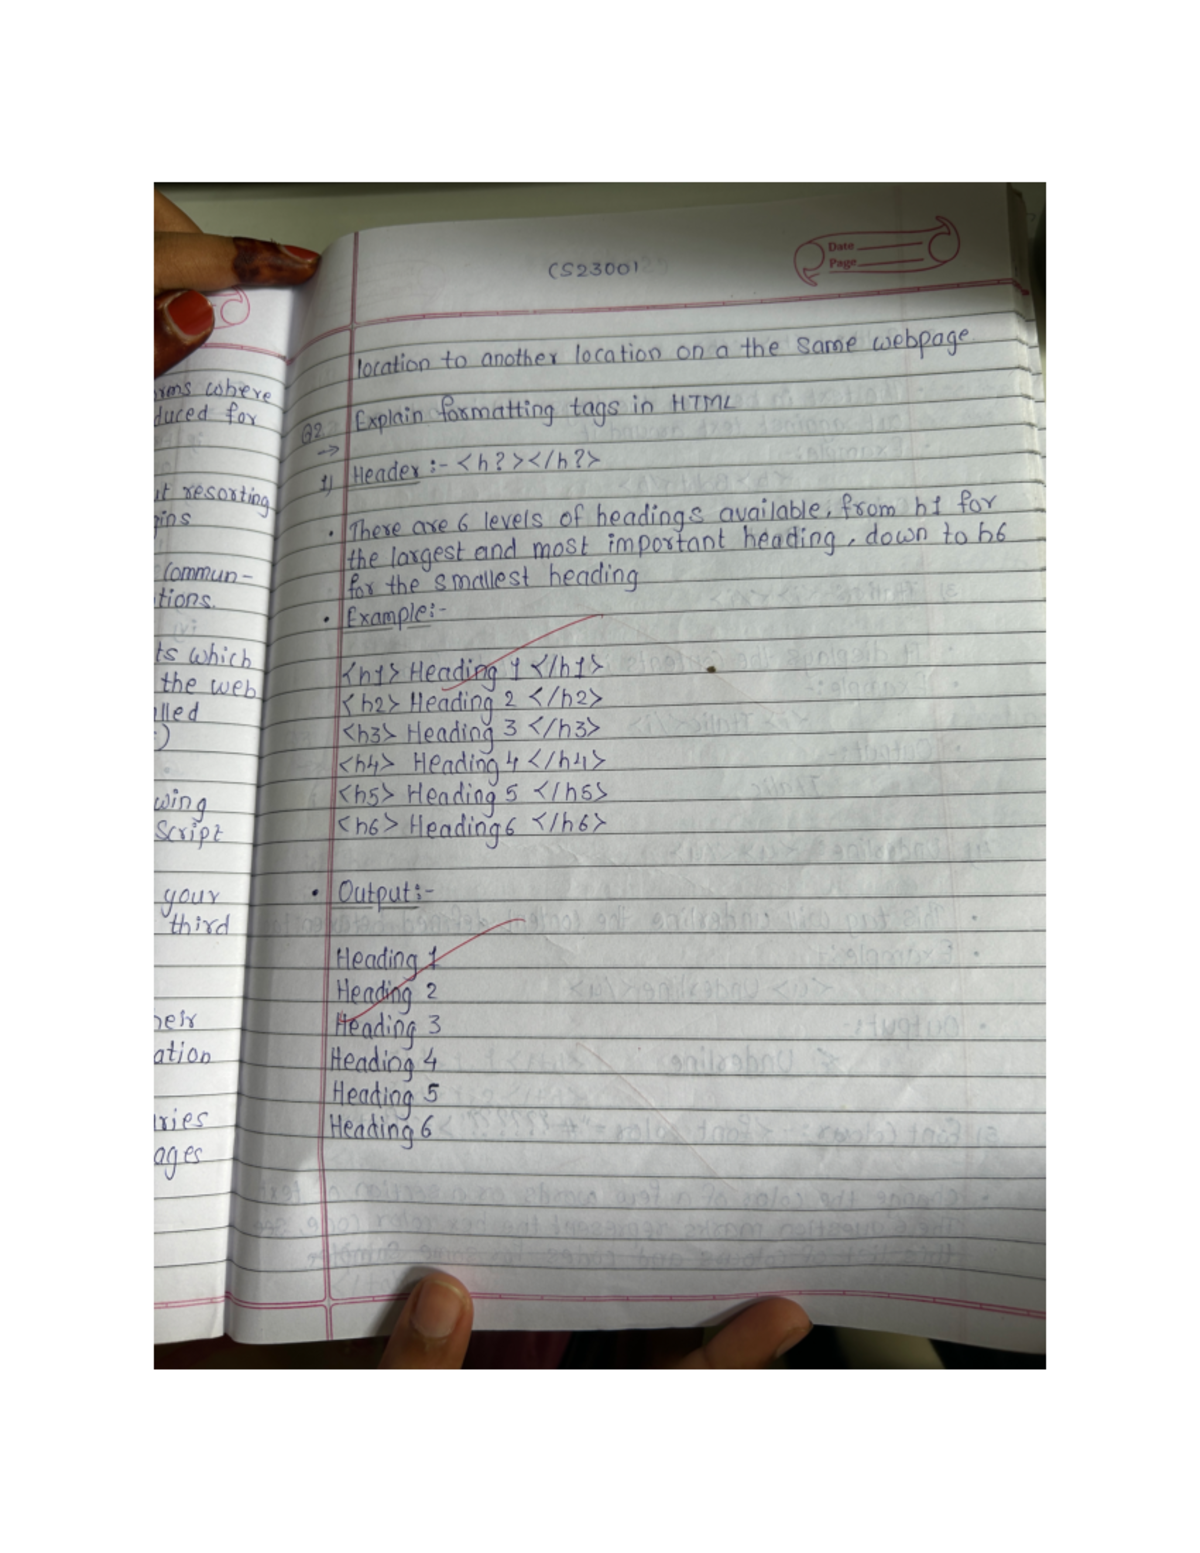 CS23001
Date
Page
location to another location on a the same webpage.
Q2. Explain formatting tags in HTML
→
1) Header :- <h?></h?>
• There are 6 levels of headings available, from h1 for
the largest and most important heading, down to h6
for the smallest heading
• Example:-
<h1> Heading 1 </h1>
<h2> Heading 2 </h2>
<h3> Heading 3 </h3>
<h4> Heading 4 </h4>
<h5> Heading 5 </h5>
<h6> Heading 6 </h6>
• Output:-
Heading 1
Heading 2
Heading 3
Heading 4
Heading 5
Heading 6
where
duced for
resorting
gins
Commun-
tions.
ts which
the web
lled
)
wing
Script
your
third
heir
ation
ries
ages